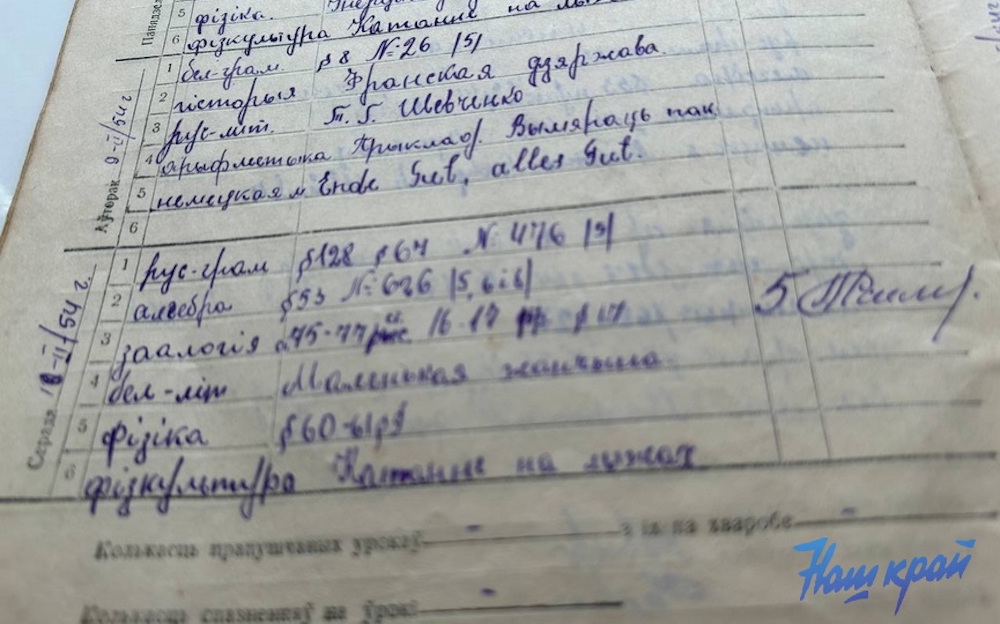 Панядзе
5 фізіка.
6 фізкультура Катание на лы
Аўторак 9-II/54 г
1 бел-грам. § 8 №26 /5/
2 гісторыя Франская дзяржава
3 рус-літ. Т. Г. Шевченко
4 арыфметыка Прыклад. Вымяраць пак
5 немецкая м Ende Gut, alles Gut.
6
Серада 10-II/54 г.
1 рус-грам § 128 § 67 № 476 /5/
2 алгебра § 53 № 626 /5, 6 і 8/
3 заалогія 75-77 16-17 § 17
4 бел-літ Маленькая жанчына
5 фізіка § 60-61
6 фізкультура Катание на лыжах
5
Колькасць прапушчаных урокаў - з іх па хваробе -
Колькасць спазненняў на ўрокі -
Наш край